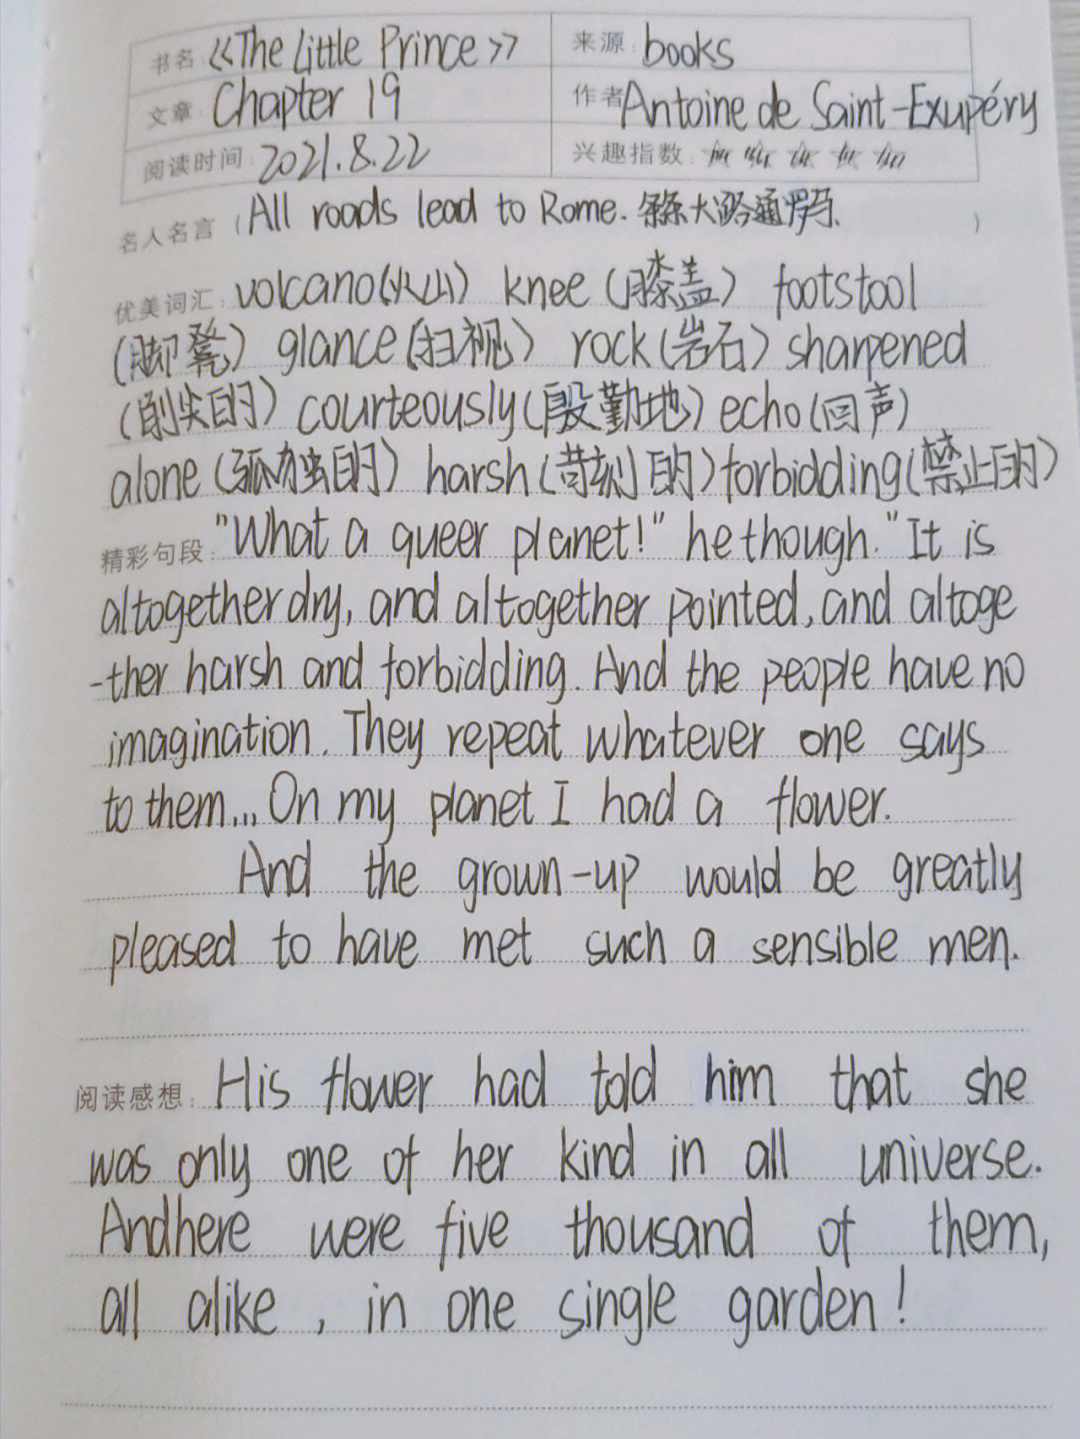 书名: 《The Little Prince》 来源: books
文章: Chapter 19 作者 Antoine de Saint-Exupéry
阅读时间: 2021.8.22 兴趣指数:
名人名言 (All roads lead to Rome. 条条大路通罗马. )
优美词汇: volcano(火山) knee (膝盖) footstool
(脚凳) glance (扫视) rock (岩石) sharpened
(削尖的) courteously (殷勤地) echo (回声)
alone (孤独的) harsh (苛刻的) forbidding (禁止的)
精彩句段: "What a queer planet!" he though. "It is
altogether dry, and altogether pointed, and altoge
-ther harsh and forbidding. And the people have no
imagination. They repeat whatever one says
to them... On my planet I had a flower.
And the grown-up would be greatly
pleased to have met such a sensible men.
阅读感想: His flower had told him that she
was only one of her kind in all universe.
Andhere were five thousand of them,
all alike, in one single garden!